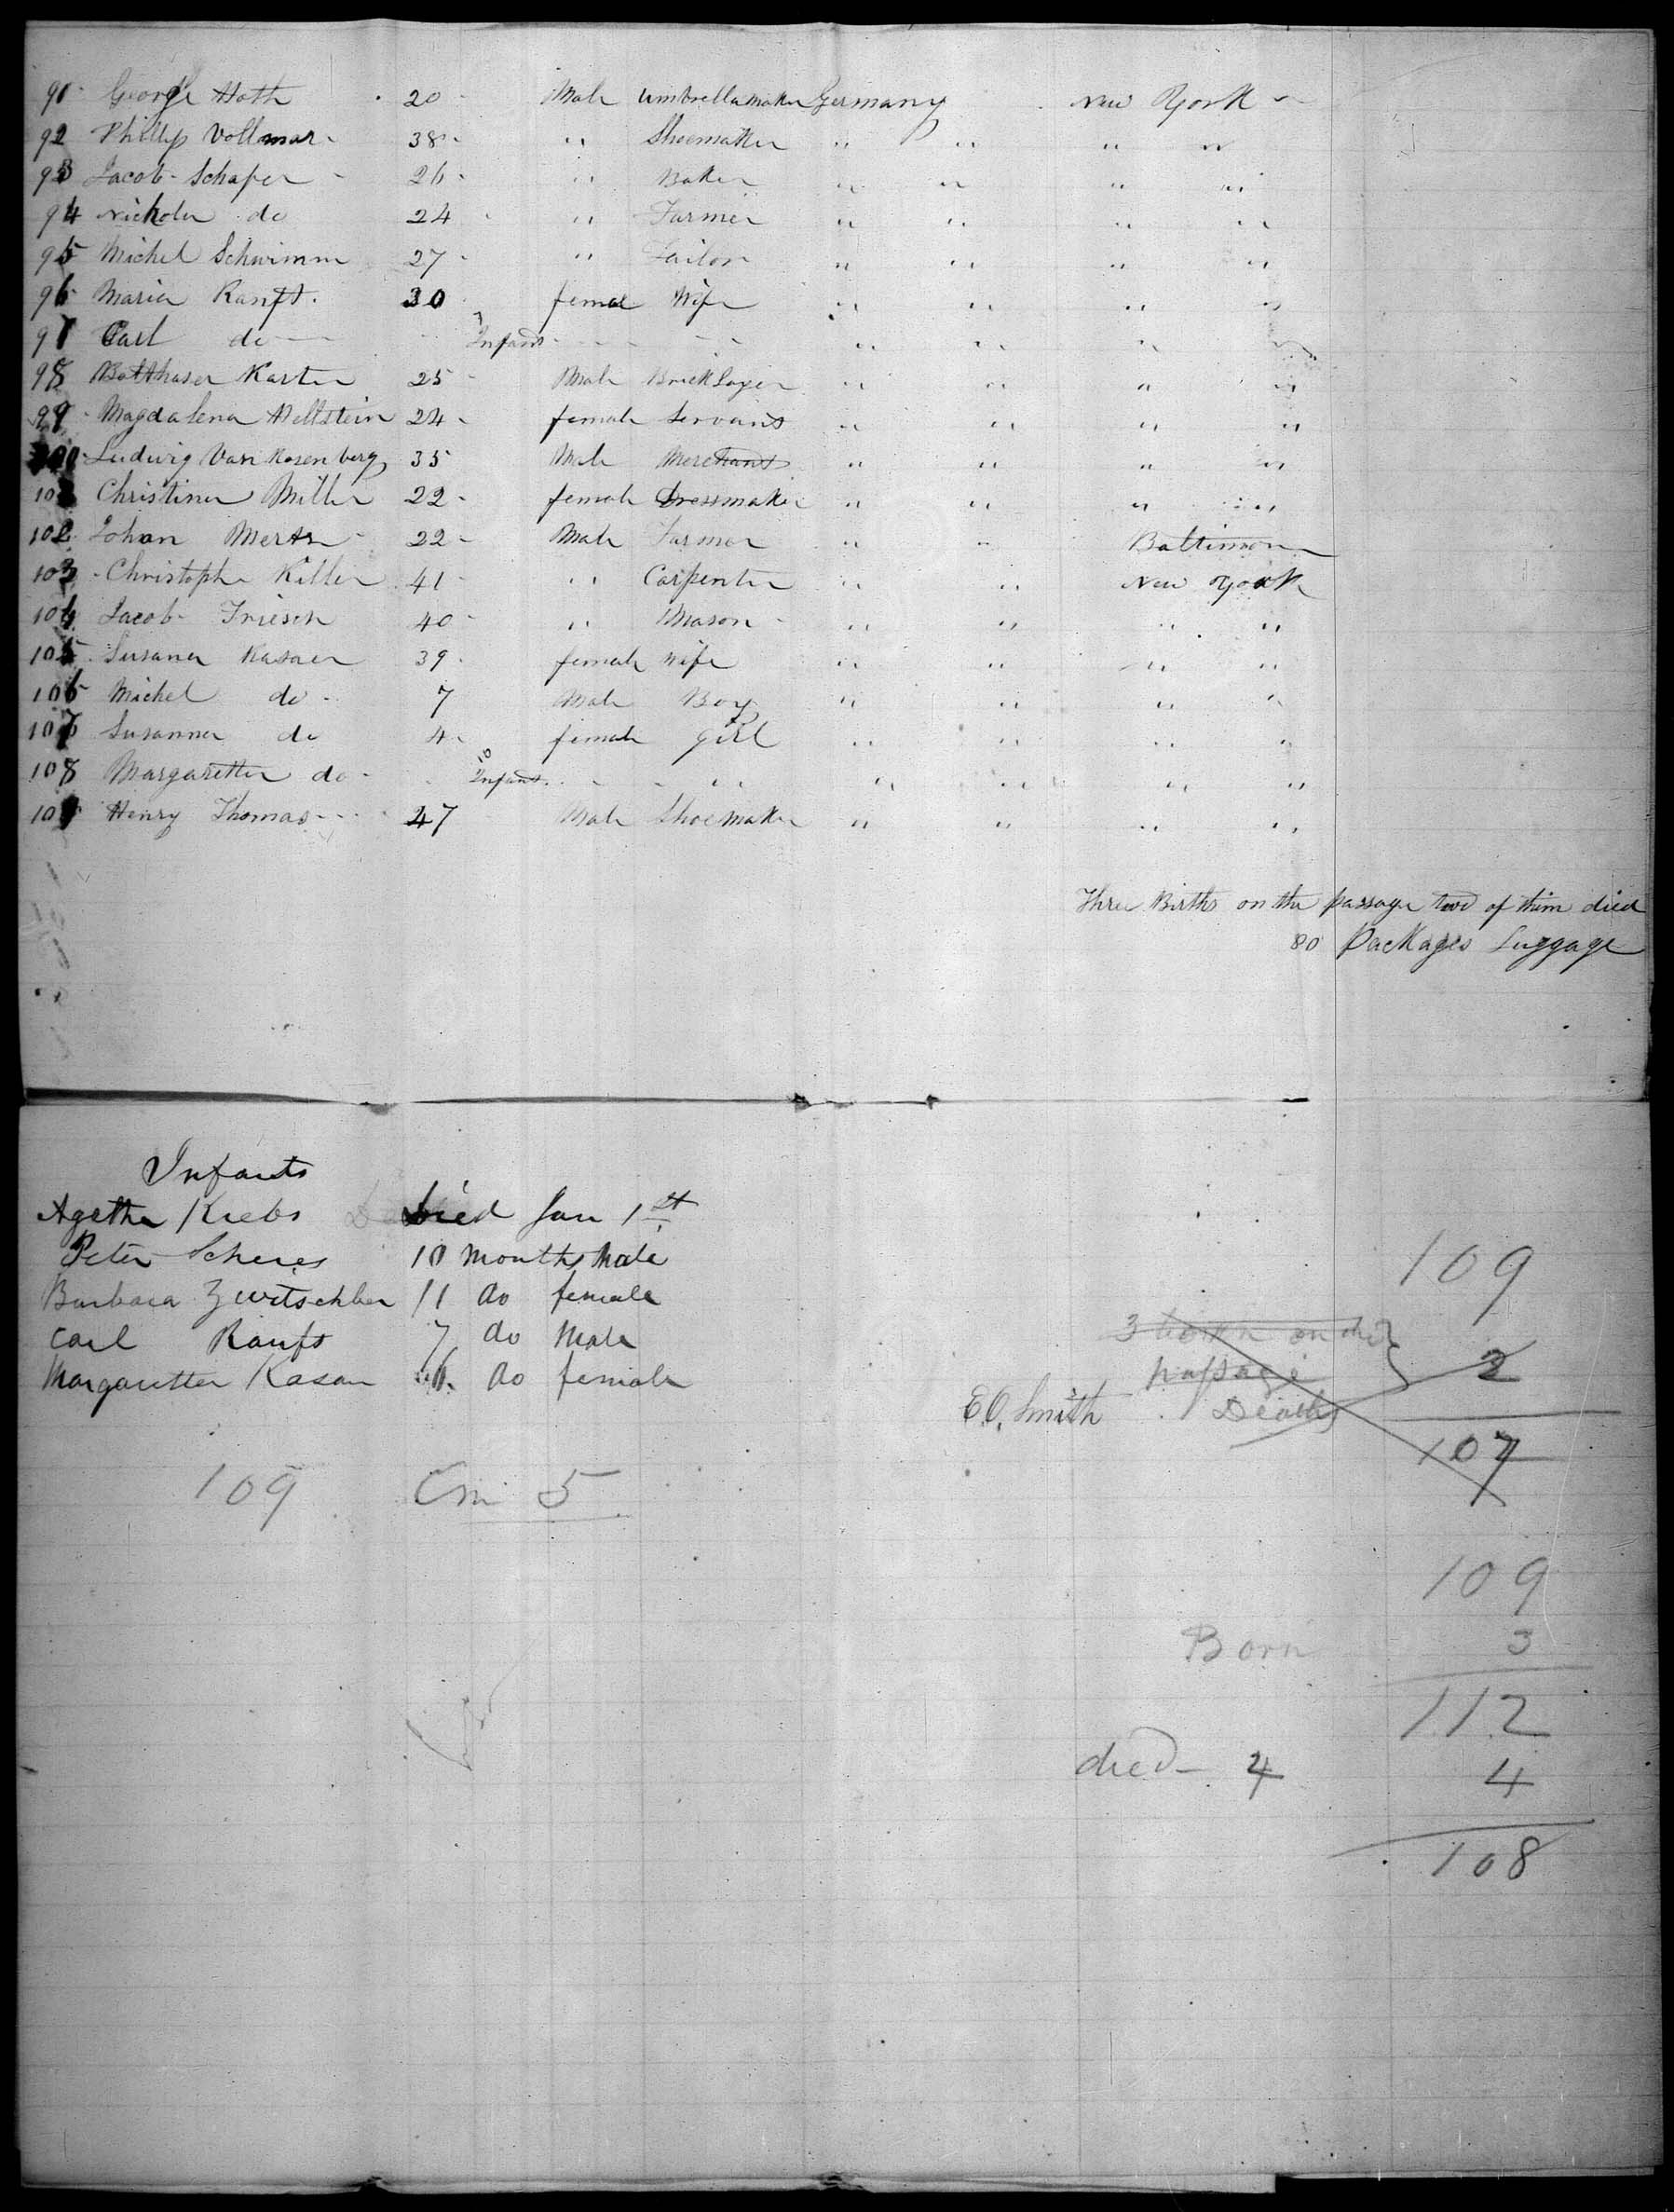 91 George Hoth 20 Male Umbrellamaker Germany New York
92 Phillip Vollmar 38 " Shoemaker " " " "
93 Jacob Schafer 26 " Baker " " " "
94 Nicholas do 24 " Farmer " " " "
95 Michel Schwimm 27 " Tailor " " " "
96 Maria Ranft 30 femal Wife " " " "
97 Carl do 7 Infant " " " " "
98 Balthaser Karter 25 Male Brick Layer " " " "
99 Magdalena Hellstein 24 female Servant " " " "
100 Ludwig Van Rosenberg 35 Male Merchant " " " "
101 Christina Miller 22 female Dressmaker " " " "
102 Johan Merts 22 Male Farmer " " Baltimore
103 Christophe Killer 41 " Carpenter " " New York
104 Jacob Friesch 40 " Mason " " " "
105 Susana Kasaer 39 female Wife " " " "
106 Michel do 7 Male Boy " " " "
107 Susanna do 4 female Girl " " " "
108 Margaretta do Infant " " " " "
109 Henry Thomas 47 Male Shoemaker " " " "
Three Births on the passage two of them died
80 Packages Luggage
Infants
Agatha Krebs Died Jan 1st
Peter Scheres 10 Months Male
Barbara 11 do female
Carl Ranft 7 do Male
Margaretta Kasaer do female
109
3 born on the
passage 2
E.O. Smith Deaths
107
109 5
109
Born 3
112
died 4 4
108